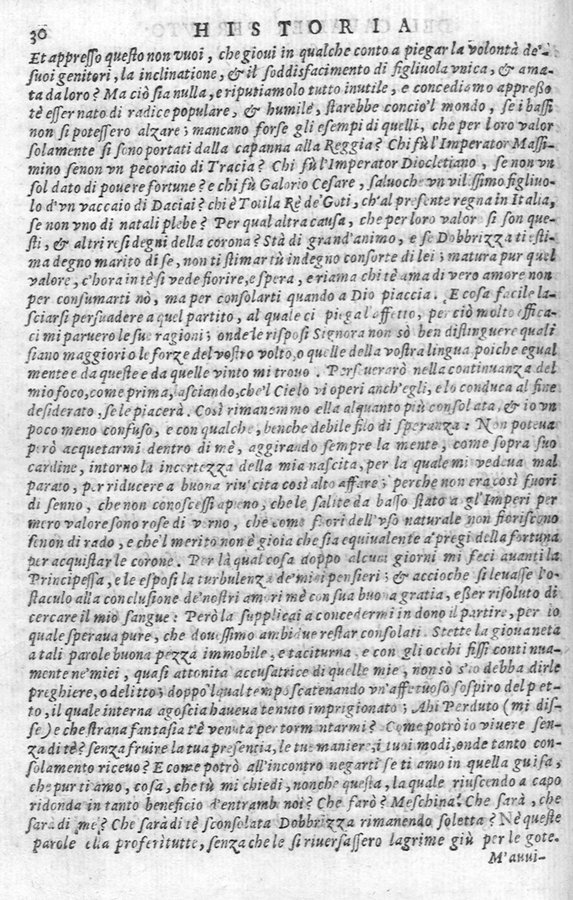 30 HISTORIA
Et appresso questo non vuoi, che gioui in qualche conto a piegar la volontà de'
suoi genitori, la inclinatione, & il soddisfacimento di figliuola vnica, & ama-
ta da loro? Ma ciò sia nulla, e riputiamolo tutto inutile, e concediamo appreßo
tè esser nato di radice populare, & humile, starebbe concio'l mondo, se i bassi
non si potessero alzare; mancano forse gli esempi di quelli, che per loro valor
solamente si sono portati dalla capanna alla Reggia? Chi fù l'Imperator Massi-
mino senon vn pecoraio di Tracia? Chi fù l'Imperator Diocletiano, se non vn
sol dato di pouere fortune? e chi fù Galorio Cesare, saluoche vn vilissimo figliuo-
lo d'vn vaccaio di Daciai? chi è Totila Rè de' Goti, ch'al presente regna in Italia,
se non vno di natali plebe? Per qual altra causa, che per loro valor si son que-
sti, & altri resi degni della corona? Stà di grand'animo, e se Dobbrizza ti esti-
ma degno marito di se, non ti stimar tù indegno consorte di lei; matura pur quel
valore, c'hora in tè si vede fiorire, e spera, e riama chi tè ama di vero amore non
per consumarti nò, ma per consolarti quando a Dio piaccia. E cosa facile la-
sciarsi persuadere a quel partito, al quale ci piega l'affetto, per ciò molto effica-
ci mi paruero le sue ragioni; onde le risposi Signora non sò ben distinguere quali
siano maggiori o le forze del vostro volto, o quelle della vostra lingua poiche egual
mente e da queste e da quelle vinto mi trouo. Perseuerarò nella continuanza del
mio foco, come prima, lasciando, che'l Cielo vi operi anch'egli, e lo conduca al fine
desiderato, se le piacerà. Così rimanemmo ella alquanto più consolata, & io vn
poco meno confuso, e con qualche, benche debile filo di speranza: Non poteua
però acquetarmi dentro di mè, aggirando sempre la mente, come sopra suo
cardine, intorno la incertezza della mia nascita, per la quale mi vedeua mal
parato, per riducere a buona riuscita così alto affare; perche non era così fuori
di senno, che non conoscessi apieno, che le salite da basso stato a gl'Imperi per
mero valore sono rose di verno, che come fuori dell'vso naturale non fioriscono
senon di rado, e che'l merito non è gioia che sia equivalente a'pregi della fortuna
per acquistar le corone. Per là qual cosa doppo alcuni giorni mi feci auanti la
Principessa, e le esposi la turbulenza de'miei pensieri; & accioche si leuasse l'o-
staculo alla conclusione de'nostri amori mè con sua buona gratia, eßer risoluto di
cercare il mio sangue: Però la supplicai a concedermi in dono il partire, per io
quale speraua pure, che douessimo ambidue restar consolati. Stette la giouaneta
a tali parole buona pezza immobile, e taciturna, e con gli occhi fissi continua-
mente ne'miei, quasi attonita accusatrice di quelle mie, non sò s'io debba dirle
preghiere, o delitto; doppo'l qual tempo scatenando vn'affetuoso sospiro del pet-
to, il quale interna agoscia haueva tenuto imprigionato; Ahi Perduto (mi dis-
se) e che strana fantasia t'è venuta per tormentarmi? Come potrò io vivere sen-
za di tè? senza fruire la tua presentia, le tue maniere, i tuoi modi, onde tanto con-
solamento riceuo? E come potrò all'incontro negarti se ti amo in quella guisa,
che pur ti amo, cosa, che tù mi chiedi, nonche questa, la quale riuscendo a capo
ridonda in tanto beneficio d'entramb. noi? Che farò? Meschina! Che sarà, che
sarà di me? Che sarà di tè sconsolata Dobbrizza rimanendo soletta? Nè queste
parole ella proferì tutte, senza che le si riuersassero lagrime giù per le gote.
M'auui-